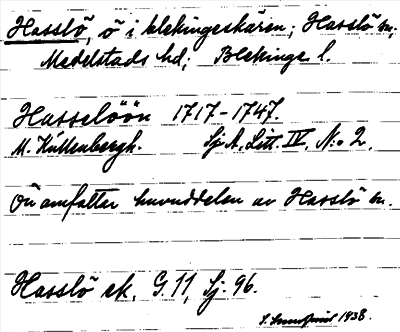 Hasslö, ö i blekingeskären; Hasslö sn,
Medelstads hd; Blekinge l.
Hasselöön 1717-1747.
M. Kullenbergh. Sj A, Litt. IV, N:o 2.
Ön omfattar huvuddelen av Hasslö sn.
Hasslö ek. G. 11, Sj. 96.
1938.